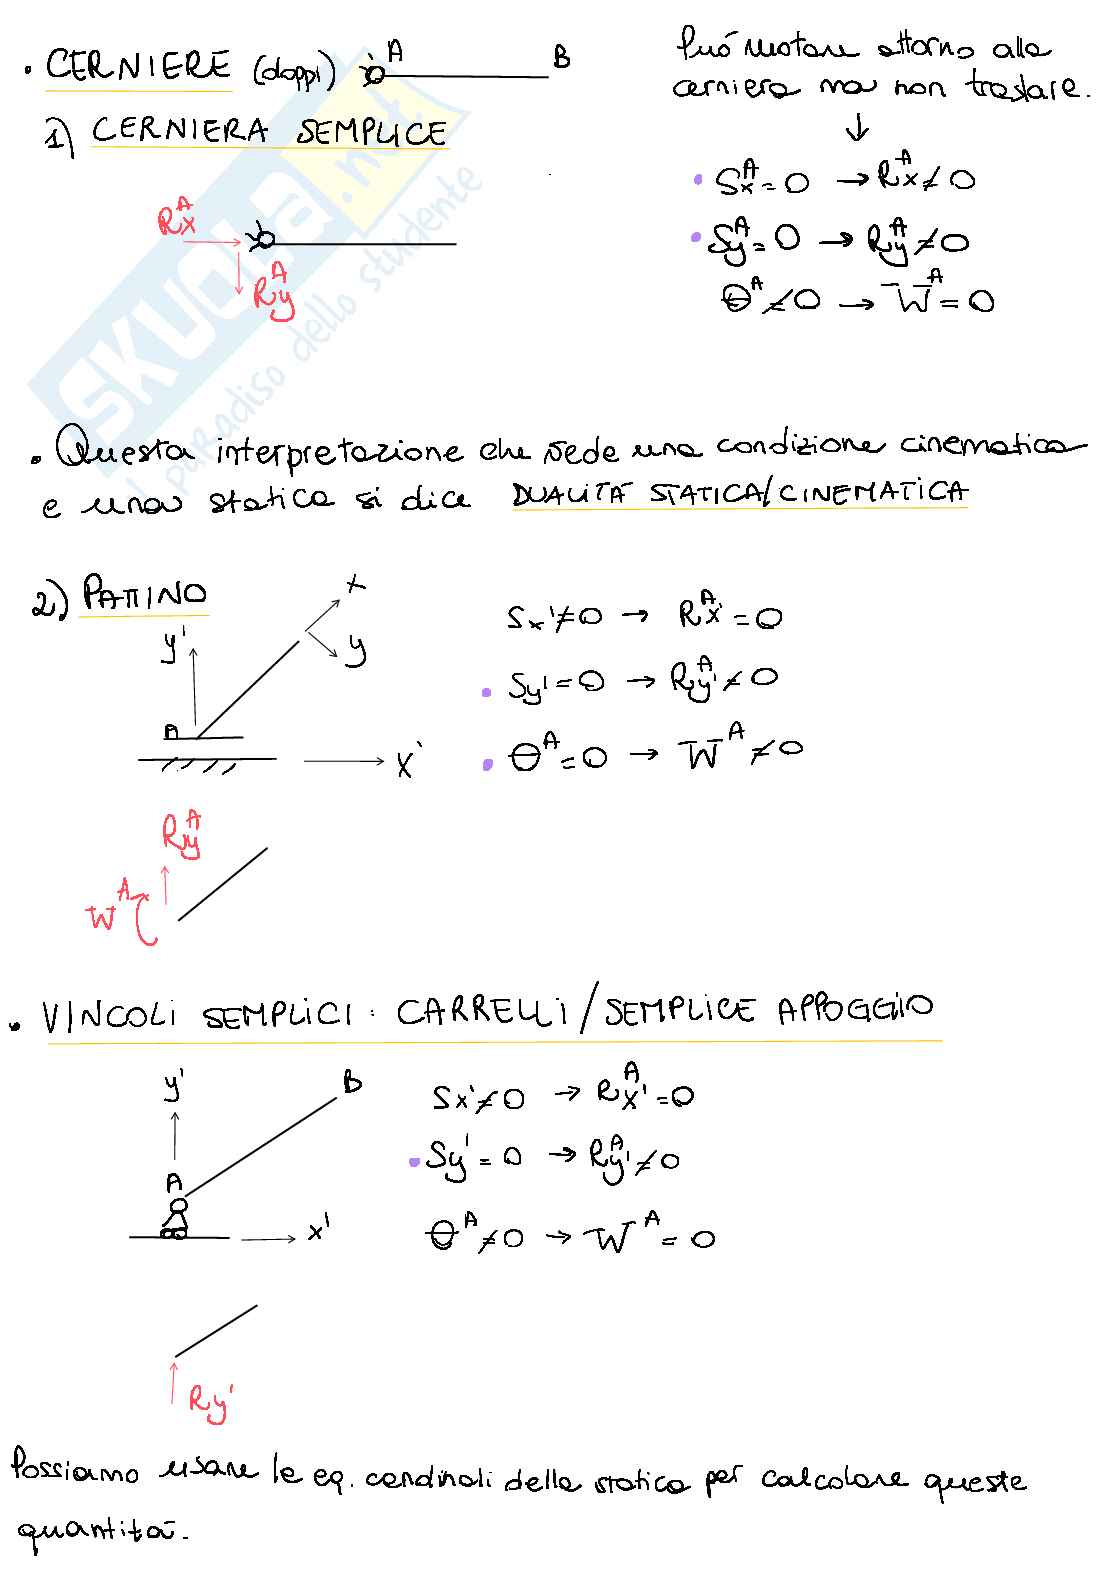 • CERNIERE (doppi) A B
Può ruotare attorno alla
cerniera ma non traslare.
↓
1) CERNIERA SEMPLICE
• Sx^A = 0 → Rx^A ≠ 0
• Sy^A = 0 → Ry^A ≠ 0
θ^A ≠ 0 → W^A = 0
Rx^A
Ry^A
SKUOLA.net
il paradiso dello studente
• Questa interpretazione che vede una condizione cinematica
e una statica si dice DUALITÀ STATICA/CINEMATICA
2) PATTINO
x
y
y'
A
x'
Sx' ≠ 0 → Rx'^A = 0
• Sy' = 0 → Ry'^A ≠ 0
• θ^A = 0 → W^A ≠ 0
Ry^A
W^A
• VINCOLI SEMPLICI: CARRELLI/SEMPLICE APPOGGIO
y'
B
A
x'
Sx' ≠ 0 → Rx'^A = 0
• Sy' = 0 → Ry'^A ≠ 0
θ^A ≠ 0 → W^A = 0
Ry'
Possiamo usare le eq. cardinali della statica per calcolare queste
quantità.